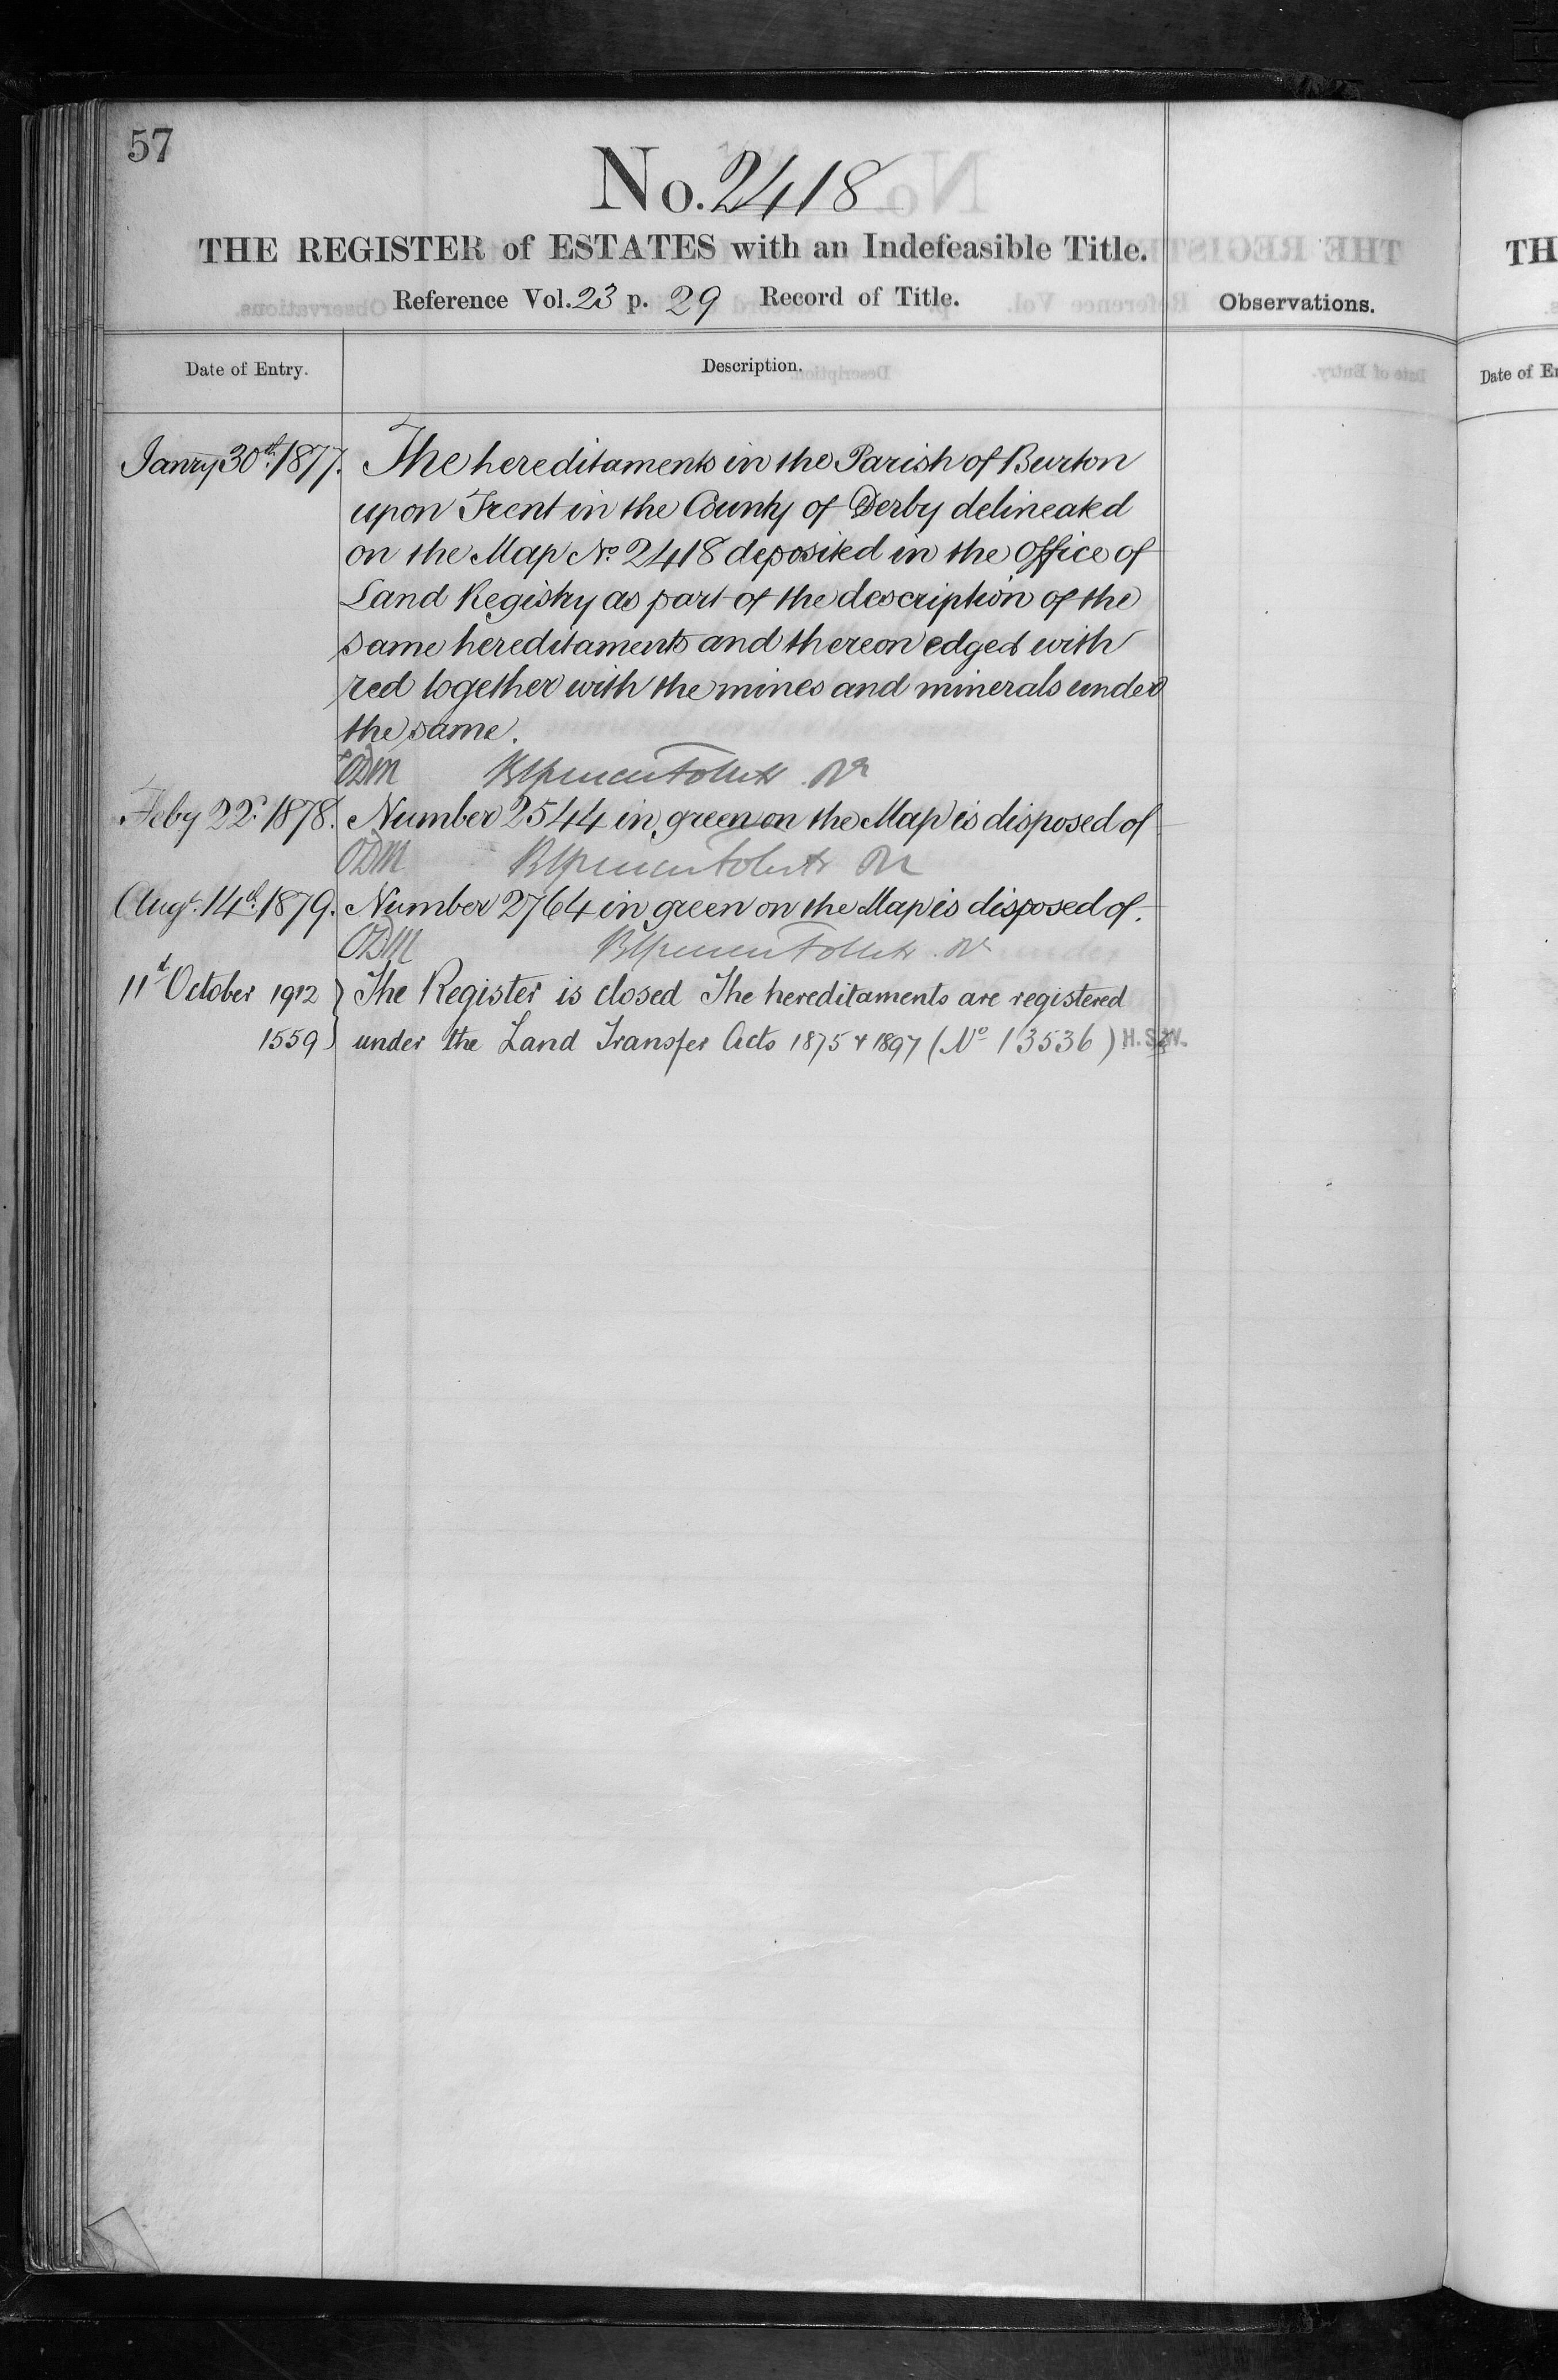 57
No. 2418
THE REGISTER of ESTATES with an Indefeasible Title.
Reference Vol. 23 p. 29 Record of Title.
Observations.
Date of Entry.
Description.
Janry 30th 1877. The hereditaments in the Parish of Burton
upon Trent in the County of Derby delineated
on the Map No 2418 deposited in the office of
Land Registry as part of the description of the
same hereditaments and thereon edged with
red together with the mines and minerals under
the same.
ODM
Feby 22d 1878. Number 2544 in green on the Map is disposed of
ODM
Augt. 14th 1879. Number 2764 in green on the Map is disposed of.
ODM
11th October 1912 } The Register is closed The hereditaments are registered
1559 } under the Land Transfer Acts 1875 & 1897 (No 13536)
TH
Date of En